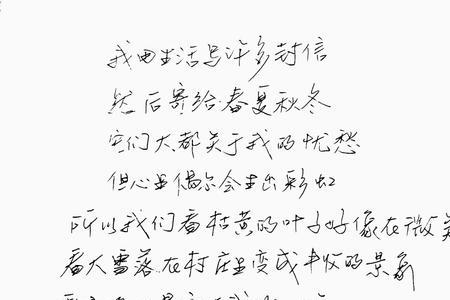 我由生活写许多封信
然后寄给春夏秋冬
它们大都关于我的忧愁
但心里偶尔会生出彩虹
所以我们看枯黄的叶子好像在微笑
看大雪落在村庄里变成丰收的景象